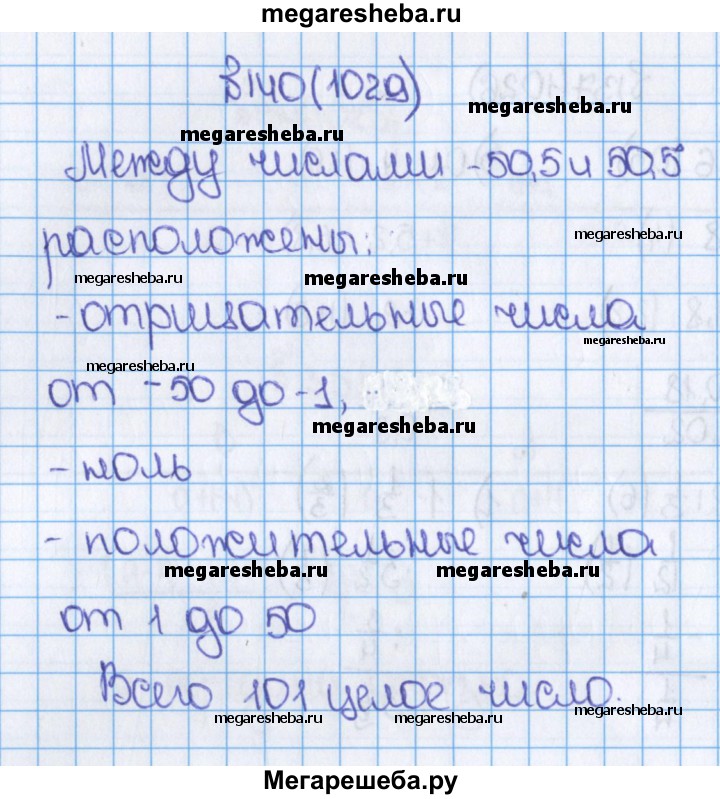 megaresheba.ru
В140(1029)
megaresheba.ru
megaresheba.ru
Между числами -50,5 и 50,5
расположены:
megaresheba.ru
megaresheba.ru
megaresheba.ru
- отрицательные числа
megaresheba.ru
megaresheba.ru
от -50 до -1,
megaresheba.ru
- ноль
- положительные числа
megaresheba.ru
megaresheba.ru
от 1 до 50
Всего 101 целое число.
megaresheba.ru
megaresheba.ru
megaresheba.ru
Мегарешеба.ру